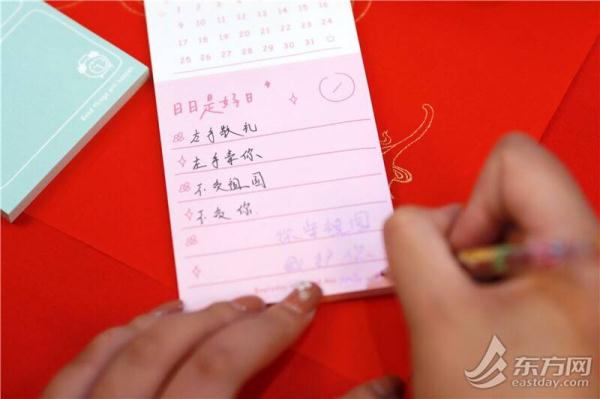 1 2 3 4 5 6 7 8
9 10 11 12 13 14 15 16
17 18 19 20 21 22 23 24
25 26 27 28 29 30 31
日日是好日
左手敬礼
左手牵你
不负祖国
不负你
你守祖国
我护你
Everyday
东方网
eastday.com